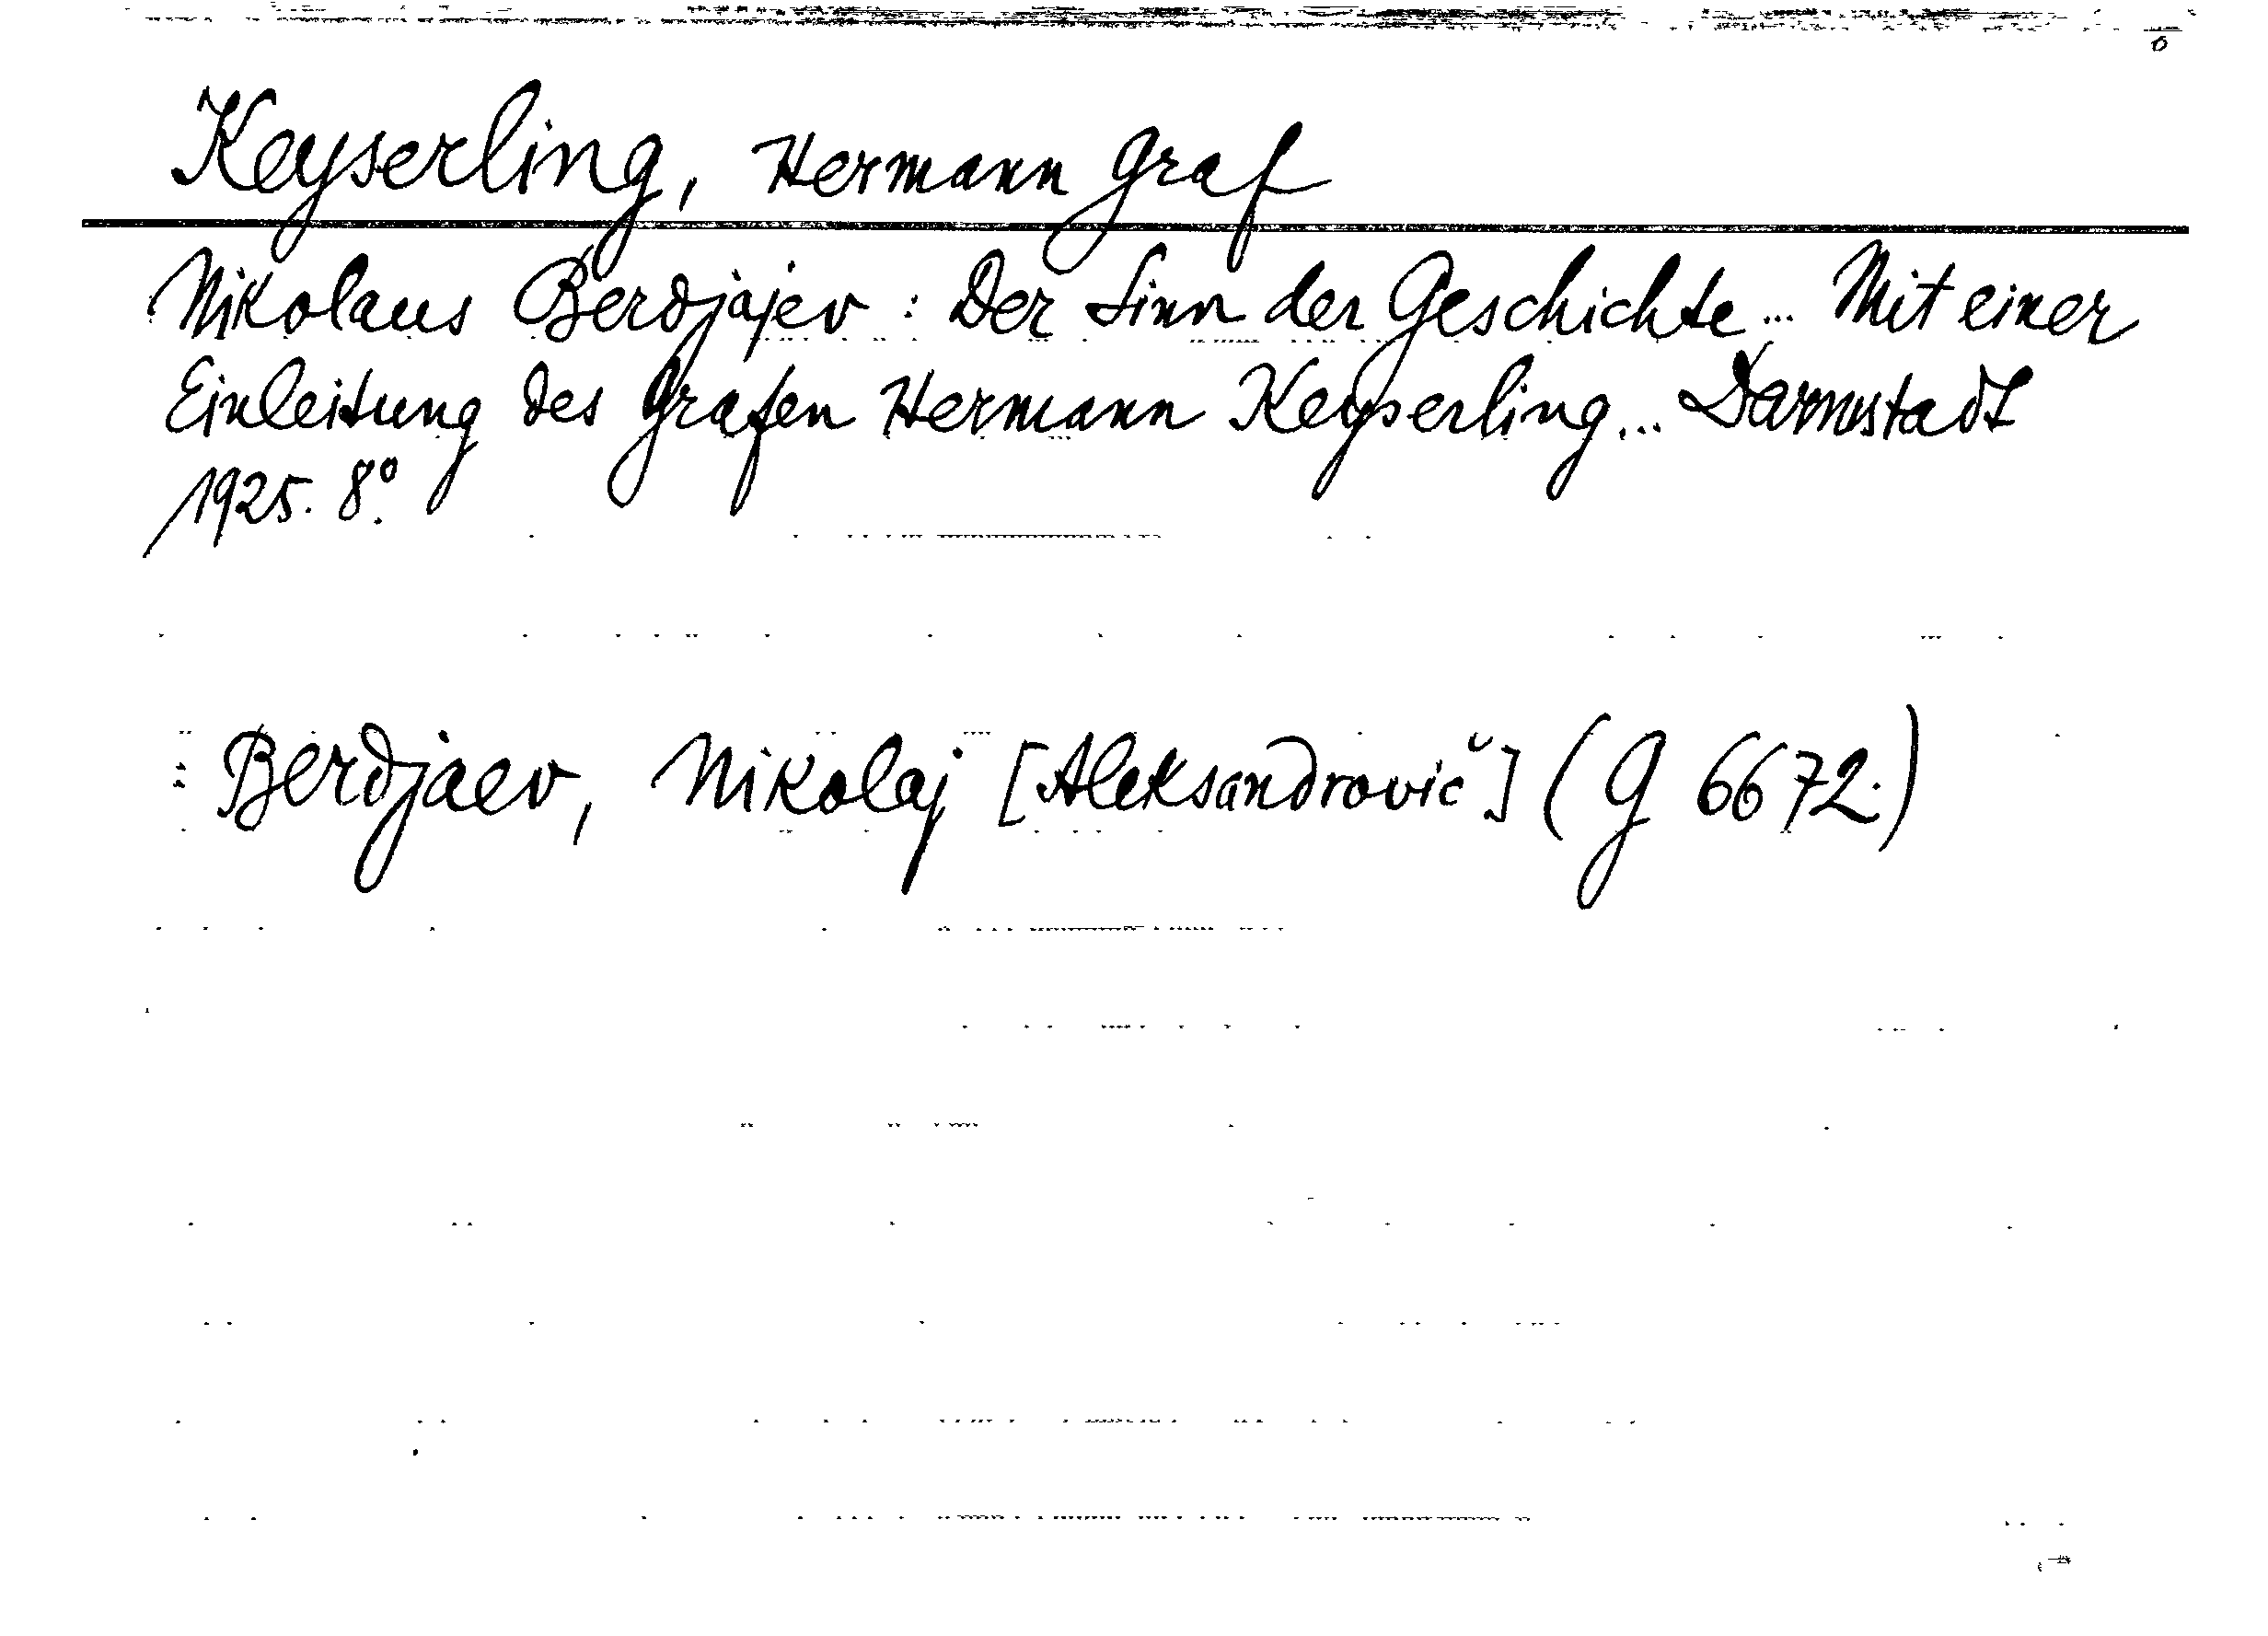 Keyserling, Hermann Graf
Nikolaus Berdjajev : Der Sinn der Geschichte ... Mit einer
Einleitung des Grafen Hermann Keyserling ... Darmstadt
1925. 8°.
: Berdjaev, Nikolaj [Aleksandrovič] (G 6672.)